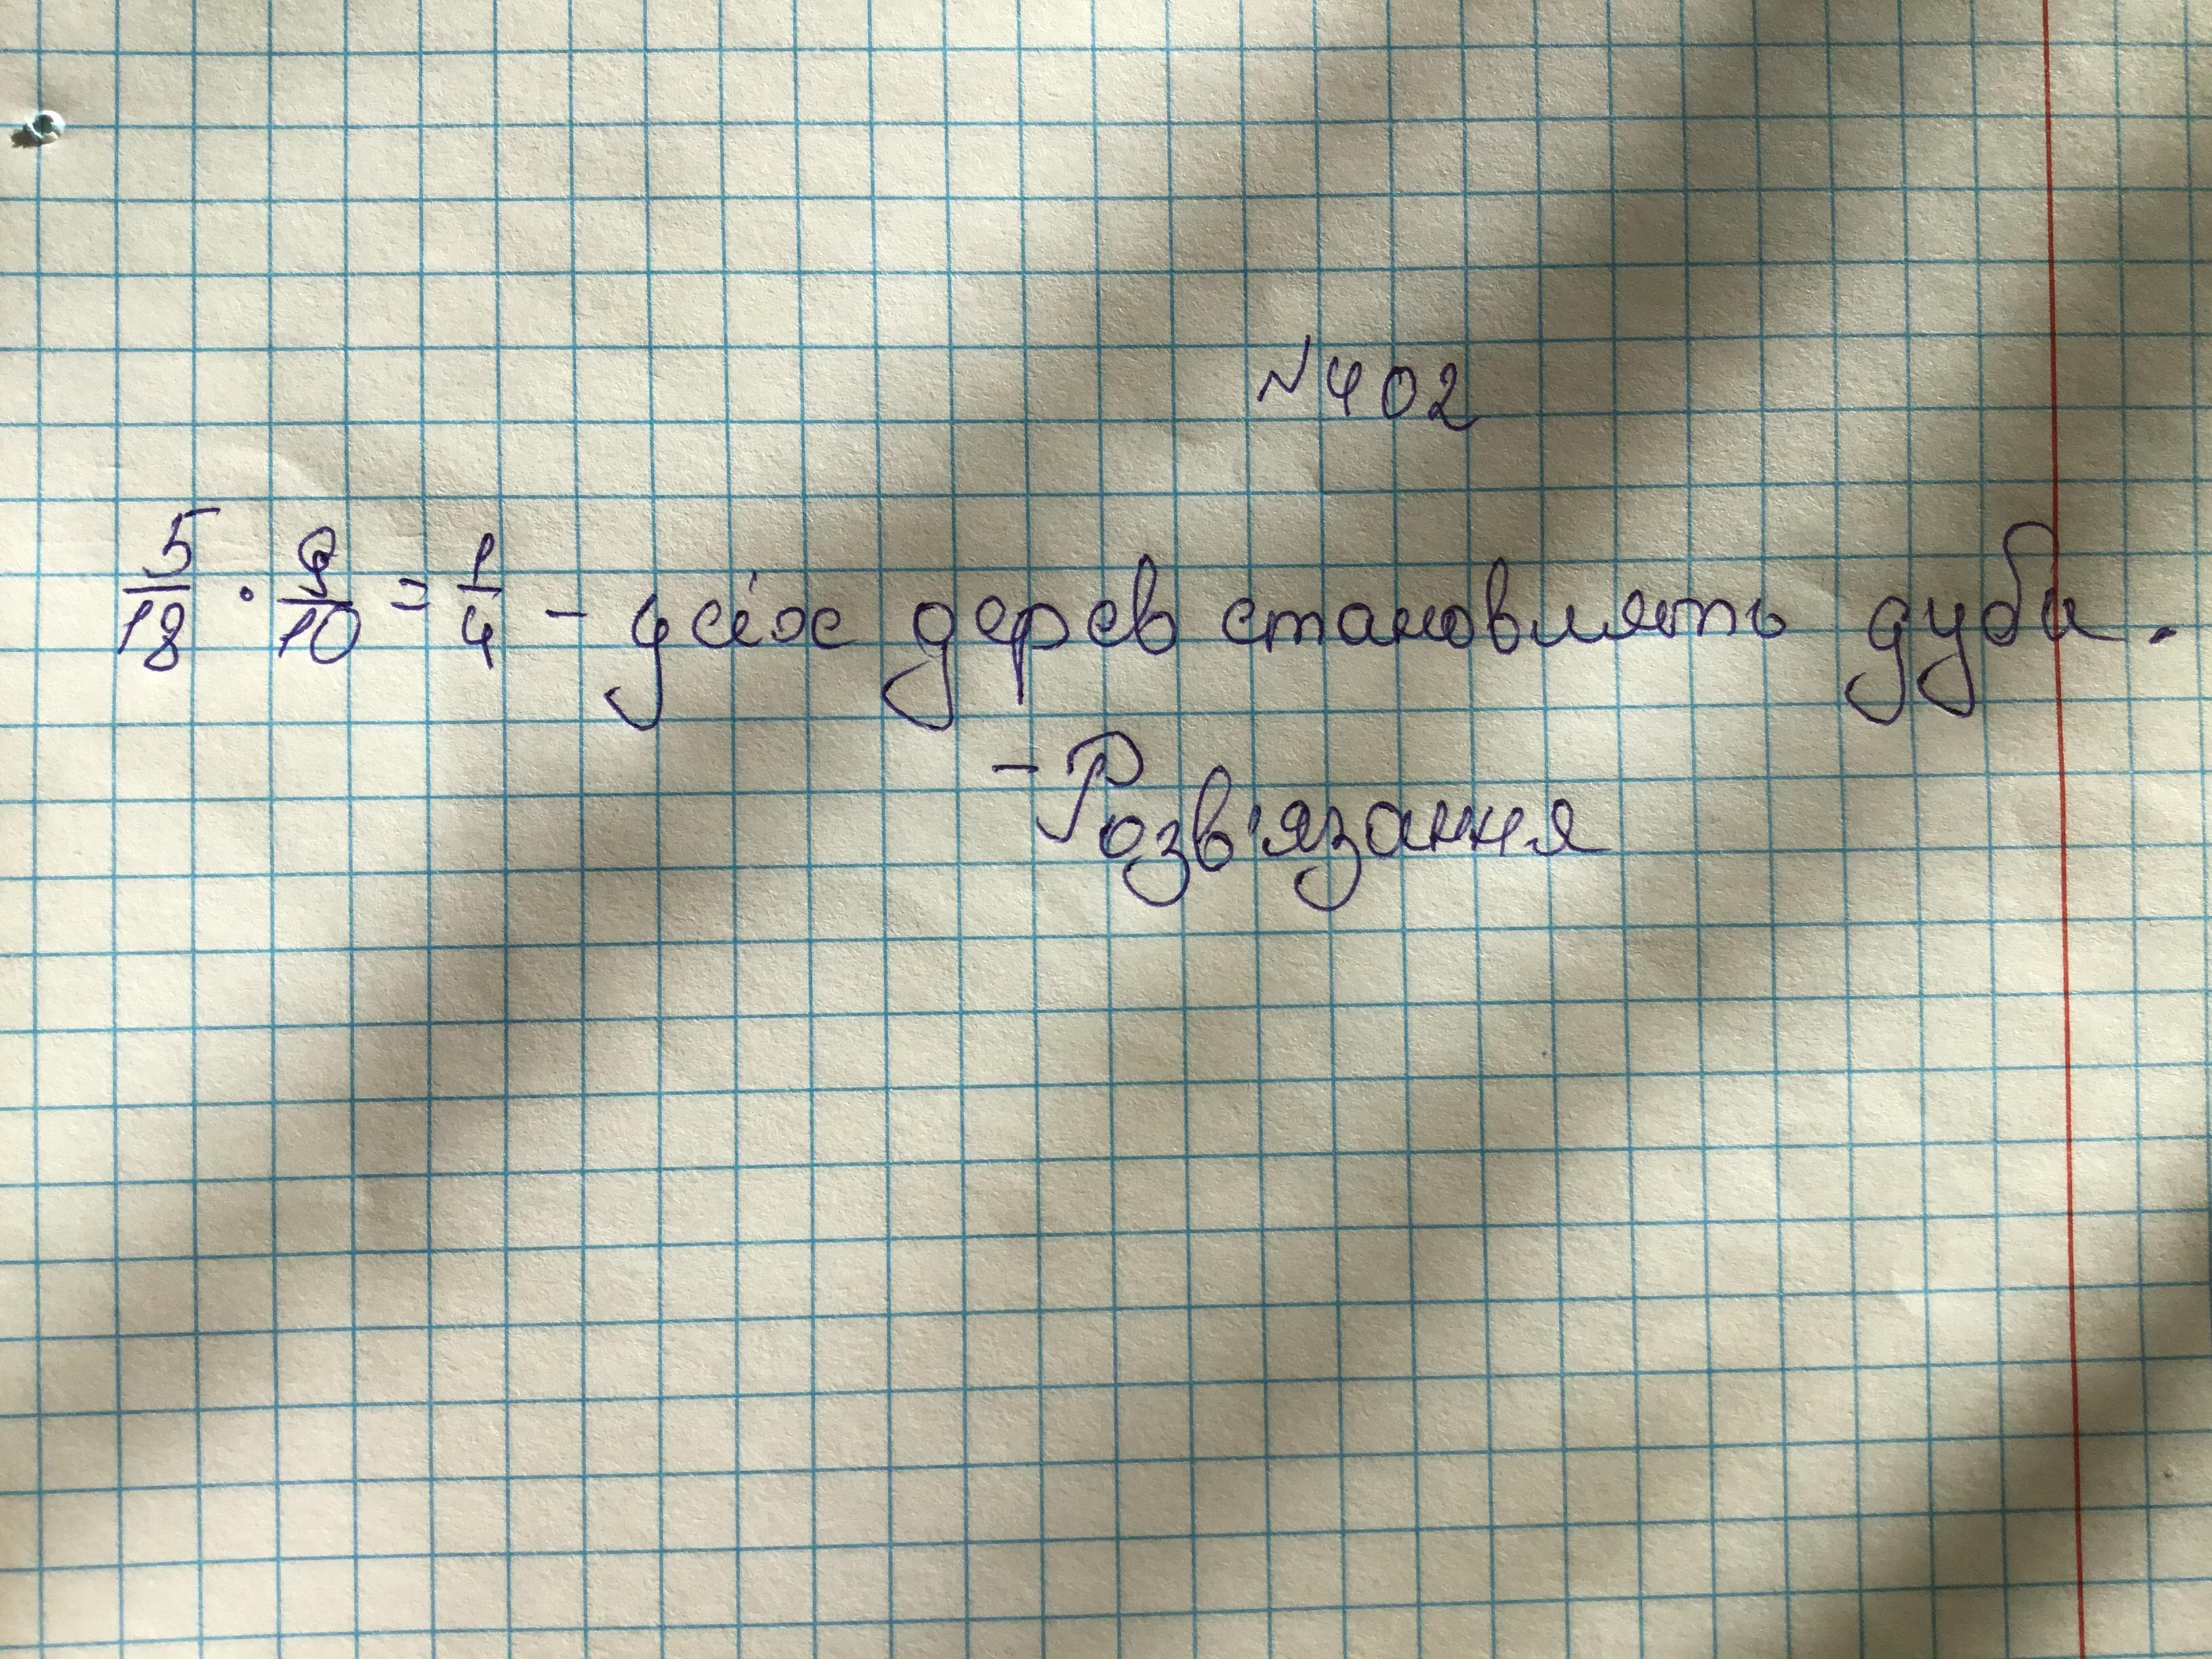 №402
5/18 · 9/10 = 1/4 - усіх дерев становлять дуби.
- Розв'язання